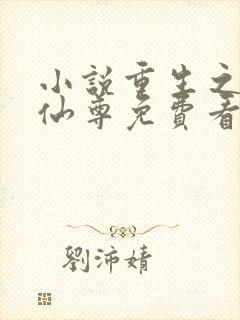 小說重生之
仙尊免費看
劉沛婧